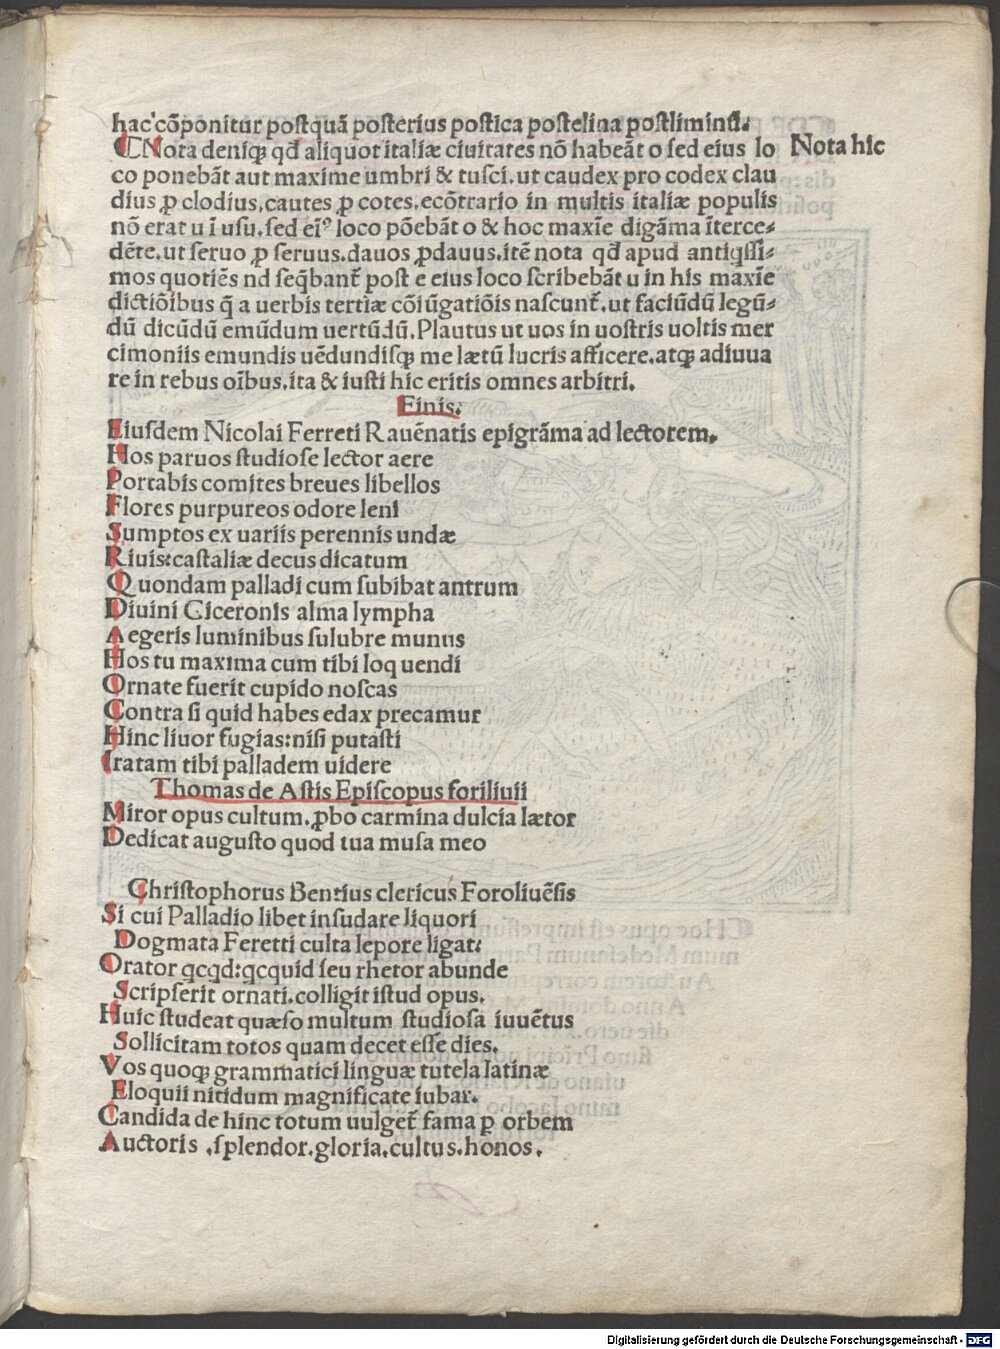 hac' cōponitur postquā posterius postica postelina postliminiū.
Nota deniq̃ qđ aliquot italiæ ciuitates nō habeāt o sed eius lo
Nota hic
co ponebāt aut maxime umbri & tusci.ut caudex pro codex clau
dius ꝓ clodius.cautes ꝓ cotes.ecōtrario in multis italiæ populis
nō erat u ī usu.sed eiꝰ loco pōebāt o & hoc maxīe digāma īterce⸗
dēte.ut seruo ꝓ seruus.dauos ꝓdauus.itē nota qđ apud antiq̄ssi⸗
mos quotiēs nd seq̄banť post e eius loco scribebāt u in his maxīe
dictiōibus q̄ a uerbis tertiæ cōiūgatiōis nascunť.ut faciūdū legū⸗
dū dicūdū emūdum uertūdū.Plautus ut uos in uostris uoltis mer
cimoniis emundis uēdundisq̃ me lætū lucris afficere.atq̃ adiuua
re in rebus oībus.ita & iusti hic eritis omnes arbitri.
Finis:
Eiusdem Nicolai Ferreti Rauēnatis epigrāma ad lectorem.
Hos paruos studiose lector aere
Portabis comites breues libellos
Flores purpureos odore leni
Sumptos ex uariis perennis undæ
Riuis:castaliæ decus dicatum
Quondam palladi cum subibat antrum
Diuini Ciceronis alma lympha
Aegeris luminibus sulubre munus
Hos tu maxima cum tibi loquendi
Ornate fuerit cupido noscas
Contra si quid habes edax precamur
Hinc liuor fugias:nisi putasti
Iratam tibi palladem uidere
Thomas de Astis Episcopus foriliuii
Miror opus cultum.ꝓbo carmina dulcia lætor
Dedicat augusto quod tua musa meo
Christophorus Bentius clericus Foroliuēsis
Si cui Palladio libet insudare liquori
Dogmata Feretti culta lepore ligat:
Orator qcqd:qcquid seu rhetor abunde
Scripserit ornati.colligit istud opus.
Huic studeat quæso multum studiosa iuuētus
Sollicitam totos quam decet esse dies.
Vos quoq̃ grammatici linguæ tutela latinæ
Eloquii nitidum magnificate iubar.
Candida de hinc totum uulgeť fama ꝑ orbem
Auctoris .splendor.gloria.cultus.honos.
Digitalisierung gefördert durch die Deutsche Forschungsgemeinschaft - DFG